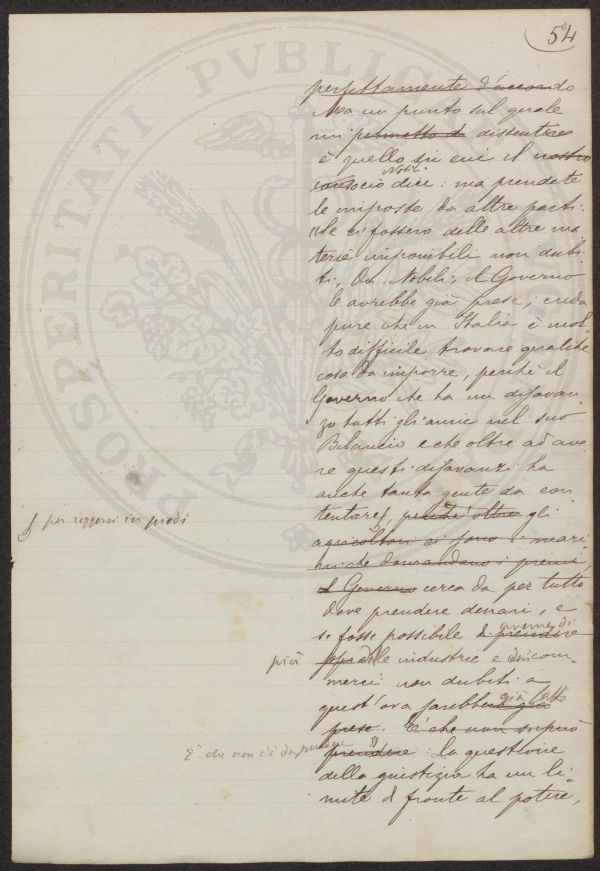 54
perfettamente d'accordo
Ma un punto sul quale
mi permetto di dissentire
è quello in cui il nostro
Nobili
consocio dice: ma prendete
le imposte da altre parti.
Se ci fossero delle altre ma
terie imponibili non dubi-
ti, On. Nobili, il Governo
le avrebbe già prese; creda
pure che in Italia è mol
to difficile trovare qualche
cosa da imporre, perché il
Governo che ha un disavan
zo tutti gli anni nel suo
Bilancio e che oltre ad ave
re questi disavanzi ha
anche tanta gente da con
tentare, perché oltre gli
per reggersi in piedi
agricoltori ci sono i mari
ni che domandano i premi
il Governo cerca da per tutto
dove prendere denari, e
se fosse possibile di prendere
averne di
più dalle industrie e dai com-
merci non dubiti a
quest'ora sarebbe già
già fatto
preso. È che non si può
È che non c'è da prendere
prendere: la questione
della giustizia ha un li-
mite di fronte al potere,
PROSPERITATI PVBLICAE